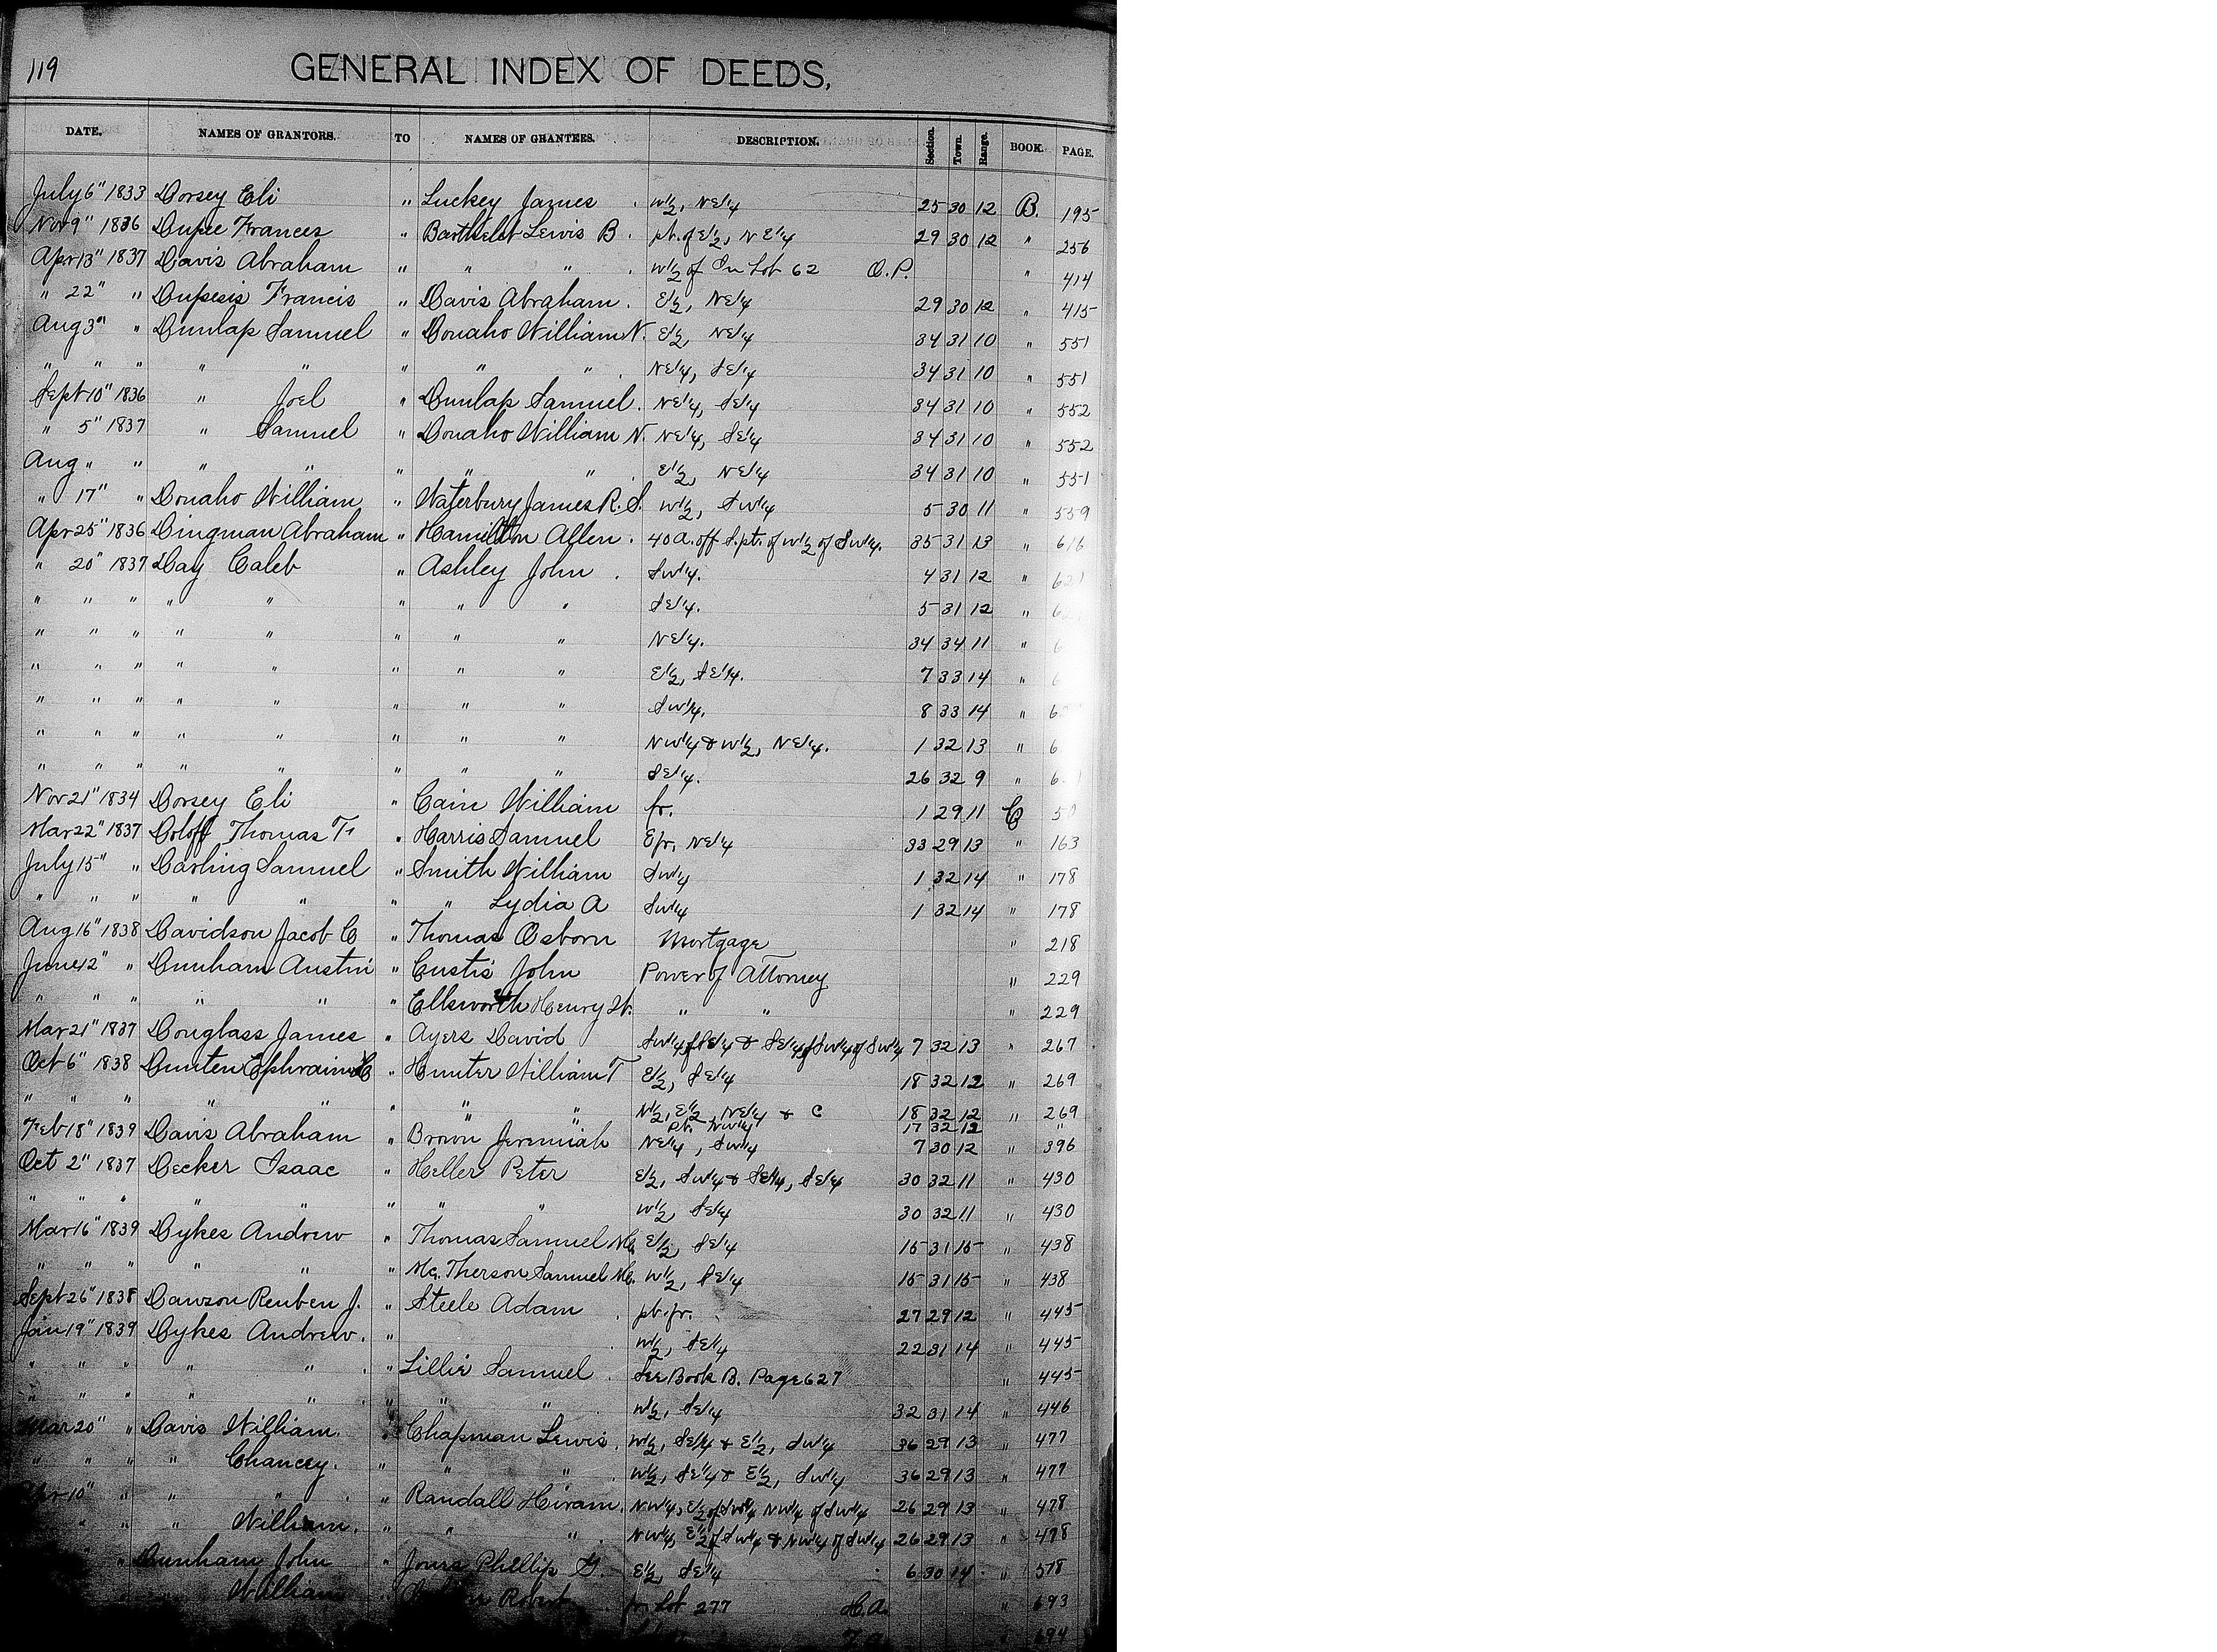 119 GENERAL INDEX OF DEEDS,
DATE. NAMES OF GRANTORS. TO NAMES OF GRANTEES. DESCRIPTION. Section. Town. Range. BOOK. PAGE.
July 6" 1833 Dorsey Eli " Luckey James . W1/2, NE1/4 25 30 12 B. 195
Nov 9" 1836 Dupee Frances " Barthelet Lewis B . pt. of E1/2, NE1/4 29 30 12 " 256
Apr 13" 1837 Davis Abraham " " " . W1/2 of In Lot 62 O.P. " 414
" 22" " Dupesis Francis " Davis Abraham . E1/2, NE1/4 29 30 12 " 415
Aug 3" " Dunlap Samuel " Donaho William N. E1/2, NE1/4 34 31 10 " 551
" " " " " " " " . NE1/4, SE1/4 34 31 10 " 551
Sept 10" 1836 " Joel " Dunlap Samuel . NE1/4, SE1/4 34 31 10 " 552
" 5" 1837 " Samuel " Donaho William N. NE1/4, SE1/4 34 31 10 " 552
Aug " " " " " " " . E1/2, NE1/4 34 31 10 " 551
" 17" " Donaho William " Waterbury James R. S. W1/2, SW1/4 5 30 11 " 559
Apr 25" 1836 Dingman Abraham " Hamilton Allen . 40 a. off S. pt. of W1/2 of SW1/4. 35 31 13 " 616
" 20" 1837 Day Caleb " Ashley John . SW1/4. 4 31 12 " 621
" " " " " " " " SE1/4. 5 31 12 "
" " " " " " " " NE1/4. 34 34 11 "
" " " " " " " " E1/2, SE1/4. 7 33 14 "
" " " " " " " " SW1/4. 8 33 14 "
" " " " " " " " NW1/4 & W1/2, NE1/4. 1 32 13 "
" " " " " " " " SE1/4. 26 32 9 "
Nov 21" 1834 Dorsey Eli " Cain William fr. 1 29 11 C 50
Mar 22" 1837 Doloff Thomas T. " Harris Samuel E fr. NE1/4 33 29 13 " 163
July 15" " Darling Samuel " Smith William SW1/4 1 32 14 " 178
" " " " " " " Lydia A SW1/4 1 32 14 " 178
Aug 16" 1838 Davidson Jacob C " Thomas Osborn Mortgage " 218
June 12" " Dunham Austin " Custis John Power of Attorney " 229
" " " " " " Ellsworth Henry W. " " " 229
Mar 21" 1837 Douglass James " Ayers David SW1/4 of SE1/4 & SE1/4 of SW1/4 of SW1/4 7 32 13 " 267
Oct 6" 1838 Dunten Ephraim H " Hunter William T E1/2, SE1/4 18 32 12 " 269
" " " " " " " " N1/2, E1/2, NE1/4 & C 18 32 12 " 269
pt. NW1/4 17 32 12 "
Feb 18" 1839 Davis Abraham " Brown Jeremiah NE1/4, SW1/4 7 30 12 " 396
Oct 2" 1837 Decker Isaac " Heller Peter E1/2, SW1/4 & SE1/4, SE1/4 30 32 11 " 430
" " " " " " " " W1/2, SE1/4 30 32 11 " 430
Mar 16" 1839 Dykes Andrew " Thomas Samuel Mc. E1/2, SE1/4 15 31 15 " 438
" " " " " " Mc. Therson Samuel Mc. W1/2, SE1/4 15 31 15 " 438
Sept 26" 1838 Dawson Reuben J. " Steele Adam . pt. fr. 27 29 12 " 445
Jan 19" 1839 Dykes Andrew. " . W1/2, SE1/4 22 31 14 " 445
" " " " " . " Lillie Samuel . See Book B. Page 627 " 445
" " " " " . " " " . W1/2, SE1/4 32 31 14 " 446
Mar 20" " Davis William. " Chapman Lewis. W1/2, SE1/4 & E1/2, SW1/4 36 29 13 " 477
" " " " Chancey. " " " . W1/2, SE1/4 & E1/2, SW1/4 36 29 13 " 477
Apr 10" " " " . " Randall Hiram. NW1/4, E1/2 of SW1/4 NW1/4 of SW1/4 26 29 13 " 478
" " " William. " " " . NW1/4, E1/2 of SW1/4 & NW1/4 of SW1/4 26 29 13 " 478
" " Dunham John " Jones Phillip G. E1/2, SE1/4 6 30 14 " 578
William " Robert Lot 277 H.A. " 693
694